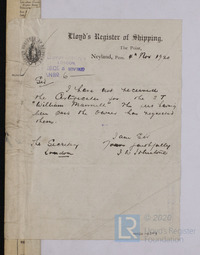 Lloyd's Register of Shipping,
The Point,
Neyland, Pem. 9th Nov 1920
Sir
I have not received
the Certificates for the ST
"William Mannell" The
seen and the Owner has requested
them
I am Sir
Yours faithfully
The Secretary
London
© 2020
Lloyd's Register
Foundation